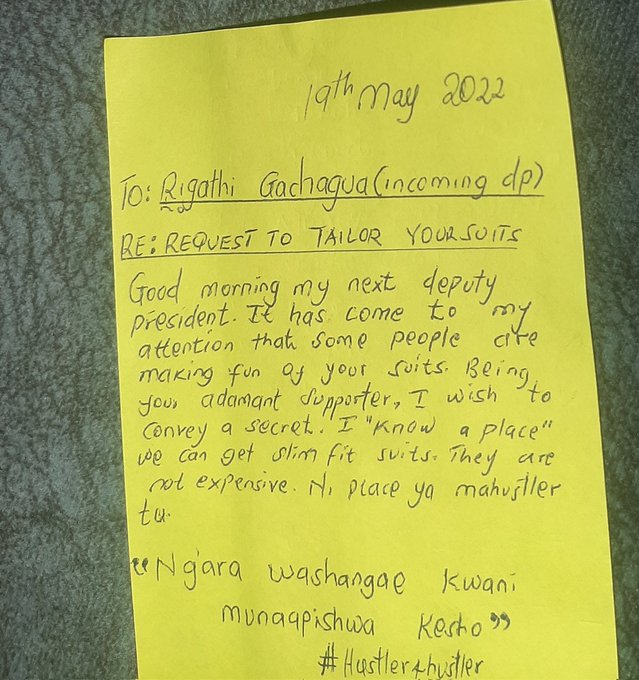 19th May 2022
To: Rigathi Gachagua (incoming dp)
RE: REQUEST TO TAILOR YOUR SUITS
Good morning my next deputy
president. It has come to my
attention that some people are
making fun of your suits. Being
your adamant supporter, I wish to
convey a secret. I "know a place"
we can get slim fit suits. They are
not expensive. Ni place ya mahustler
tu.
"Ng'ara washangae kwani
munaapishwa kesho"
#Hustler4hustler